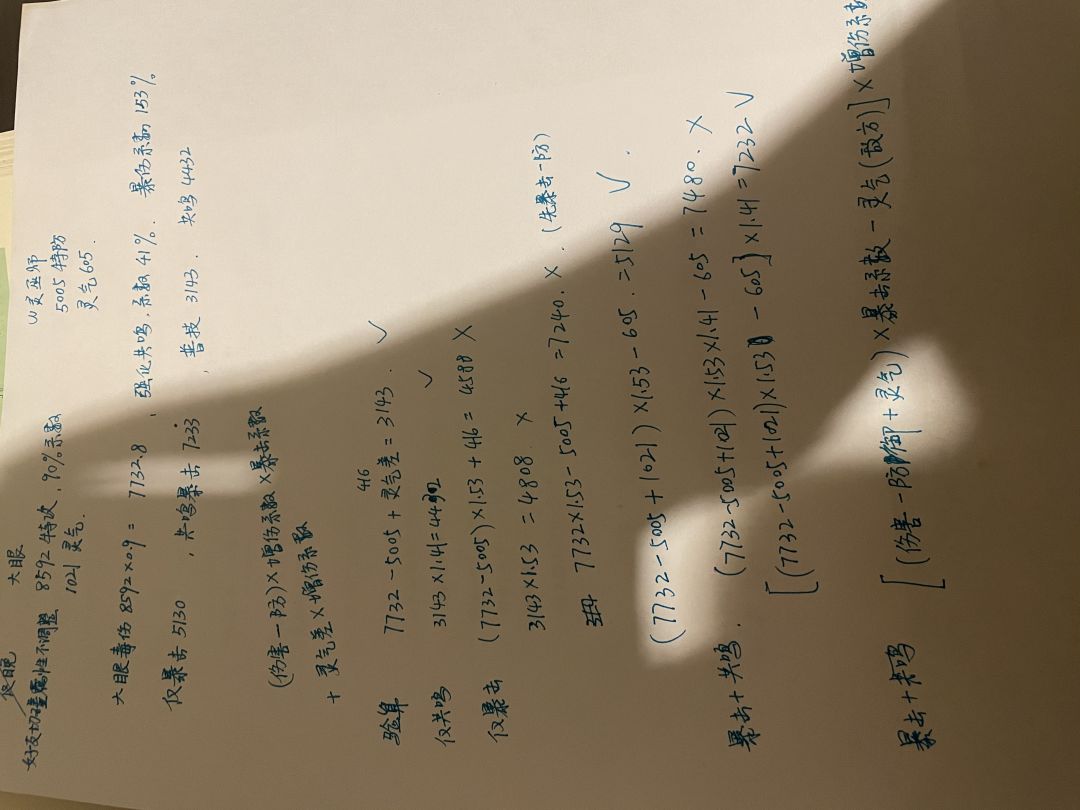 好友切磋属性不调整
大眼
8592特攻，90%系数
1021灵气.
W灵巫师
5005特防
灵气605.
大眼毒伤8592×0.9 = 7732.8，强化共鸣，系数41%. 暴伤系数153%
仅暴击5130，共鸣暴击7233，普技3143. 共鸣4432
(伤害-防)×增伤系数×暴击系数
+灵气差×增伤系数
416
验算 7732-5005+灵气差=3143. √
仅共鸣 3143×1.41=4432 √
仅暴击 (7732-5005)×1.53+416=4588 ×
3143×1.53=4808 ×
7732×1.53-5005+416=7240. ×. (先暴击-防)
(7732-5005+1021)×1.53-605.=5129 √.
暴击+共鸣. (7732-5005+1021)×1.53×1.41-605=7480. ×
[(7732-5005+1021)×1.53-605]×1.41=7232 √
暴击+共鸣 [(伤害-防御+灵气)×暴击系数-灵气(敌方)]×增伤系数